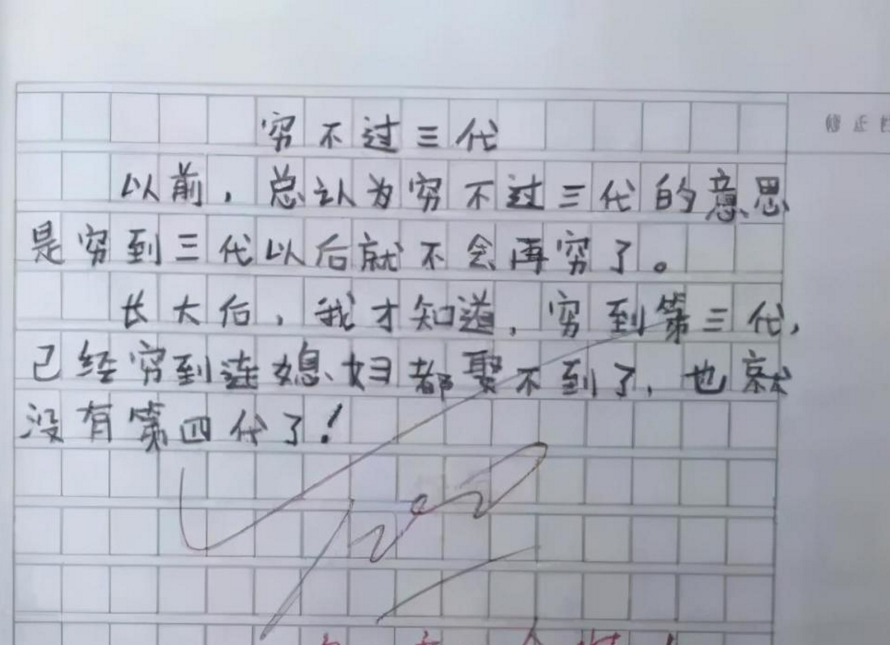 穷不过三代
修正
以前，总认为穷不过三代的意思
是穷到三代以后就不会再穷了。
长大后，我才知道，穷到第三代，
已经穷到连媳妇都娶不到了，也就
没有第四代了！